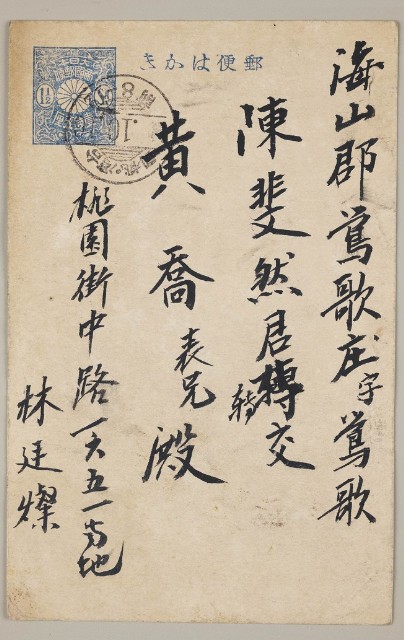 郵便はかき
1½
海山郡鶯歌庄字鶯歌
陳斐然君轉交
轉
黄喬表兄殿
桃園街中路一六五一番地
林廷燦